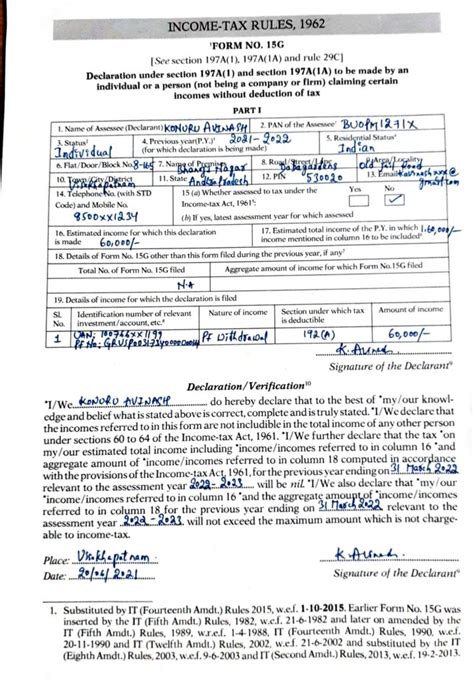 INCOME-TAX RULES, 1962
¹FORM NO. 15G
[See section 197A(1), 197A(1A) and rule 29C]
Declaration under section 197A(1) and section 197A(1A) to be made by an
individual or a person (not being a company or firm) claiming certain
incomes without deduction of tax
PART I
1. Name of Assessee (Declarant) KONURU AVINASH 2. PAN of the Assessee² BUOPM1271X
3. Status³ Individual 4. Previous year(P.Y.)⁴ 2021-2022 (for which declaration is being made) 5. Residential Status⁵ Indian
6. Flat/Door/Block No. 7. Name of Premises Bhanoji Nagar 8. Road/Street/Lane 9. Area/Locality
10. Town/City/District Visakhapatnam 11. State Andhra Pradesh 12. PIN 530020 13. Email
14. Telephone No. (with STD Code) and Mobile No. 8500xx1234 15 (a) Whether assessed to tax under the Income-tax Act, 1961⁶: Yes No ✓
(b) If yes, latest assessment year for which assessed
16. Estimated income for which this declaration is made 60,000/- 17. Estimated total income of the P.Y. in which income mentioned in column 16 to be included⁷ 1,60,000/-
18. Details of Form No. 15G other than this form filed during the previous year, if any⁸
Total No. of Form No. 15G filed Aggregate amount of income for which Form No.15G filed
N.A
19. Details of income for which the declaration is filed
Sl. No. Identification number of relevant investment/account, etc.⁹ Nature of income Section under which tax is deductible Amount of income
1 UAN: PF No: PF Withdrawal 192(A) 60,000/-
K. Avinash
Signature of the Declarant⁹
Declaration/Verification¹⁰
*I/We KONURU AVINASH do hereby declare that to the best of *my/our knowl-
edge and belief what is stated above is correct, complete and is truly stated. *I/We declare that
the incomes referred to in this form are not includible in the total income of any other person
under sections 60 to 64 of the Income-tax Act, 1961. *I/We further declare that the tax *on
my/our estimated total income including *income/incomes referred to in column 16 *and
aggregate amount of *income/incomes referred to in column 18 computed in accordance
with the provisions of the Income-tax Act, 1961, for the previous year ending on 31 March 2022
relevant to the assessment year 2022-2023 will be nil. *I/We also declare that *my/our
*income/incomes referred to in column 16 *and the aggregate amount of *income/incomes
referred to in column 18 for the previous year ending on 31 March 2022 relevant to the
assessment year 2022-2023 will not exceed the maximum amount which is not charge-
able to income-tax.
Place: Visakhapatnam K. Avinash
Date: 20/04/2021 Signature of the Declarant⁹
1. Substituted by IT (Fourteenth Amdt.) Rules 2015, w.e.f. 1-10-2015. Earlier Form No. 15G was
inserted by the IT (Fifth Amdt.) Rules, 1982, w.e.f. 21-6-1982 and later on amended by the
IT (Fifth Amdt.) Rules, 1989, w.r.e.f. 1-4-1988, IT (Fourteenth Amdt.) Rules, 1990, w.e.f.
20-11-1990 and IT (Twelfth Amdt.) Rules, 2002, w.e.f. 21-6-2002 and substituted by the IT
(Eighth Amdt.) Rules, 2003, w.e.f. 9-6-2003 and IT (Second Amdt.) Rules, 2013, w.e.f. 19-2-2013.